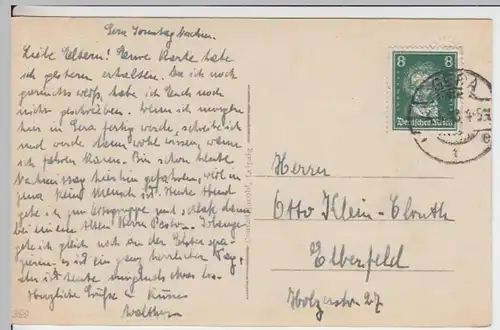 Gera Sonntag Nachm.
Liebe Eltern! Eure Karte habe
ich gestern erhalten. Da ich noch
garnichts weiß, habe ich Euch noch
nicht geschrieben. Wenn ich morgen
hier in Gera fertig werde, schreibe ich
und werde dann wohl wissen, wann
ich fahren kann. Bin schon heute
Nachmittag hierhin gefahren, weil in
Jena kein Mensch ist. Heute Abend
gehe ich zum und schlafe dann
bei einem Alten Herrn Pastor.
gehe ich gleich noch an der Elster spa-
zieren. Es ist ein ganz herrlicher Tag,
aber ist heute nirgends etwas los.
Herzliche Grüße u. Küsse
Walther
8 8
Deutsches Reich
GERA
4-5N
Herrn
Otto Klein-Clouth
Elberfeld
Holzerstr. 27
366